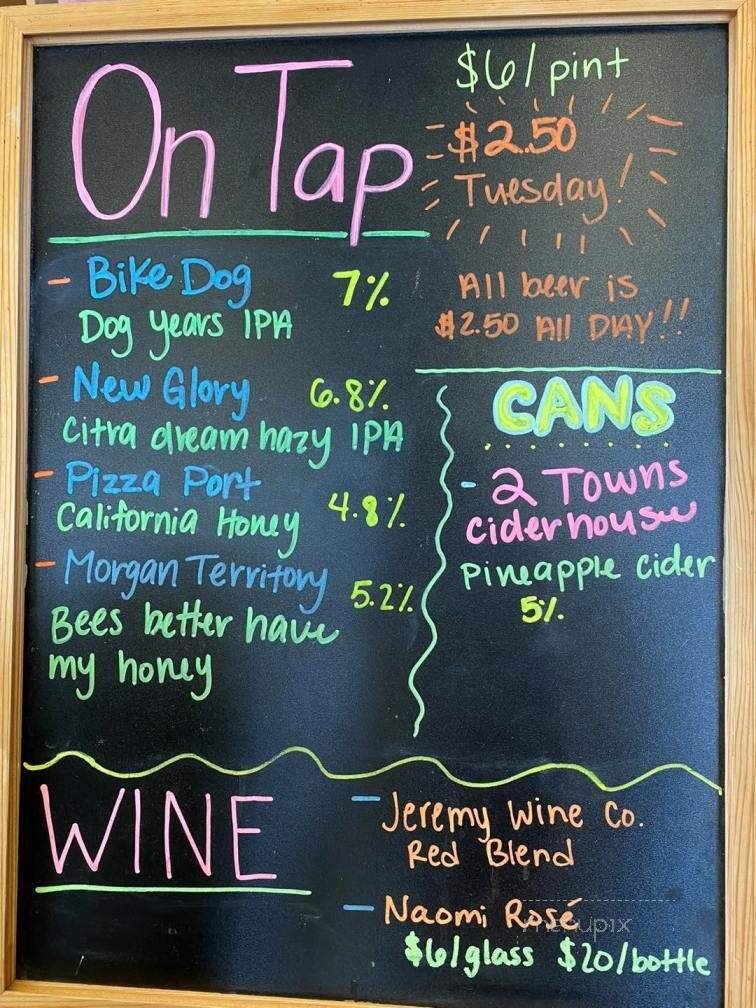 On Tap
$6/pint
$2.50
Tuesday!
All beer is
$2.50 All DAY!!
- Bike Dog 7%
Dog years IPA
- New Glory 6.8%
Citra dream hazy IPA
- Pizza Port
California Honey 4.8%
- Morgan Territory 5.2%
Bees better have
my honey
CANS
- 2 Towns
ciderhouse
Pineapple cider
5%
WINE
- Jeremy Wine Co.
Red Blend
- Naomi Rosé
menupix
$6/glass $20/bottle